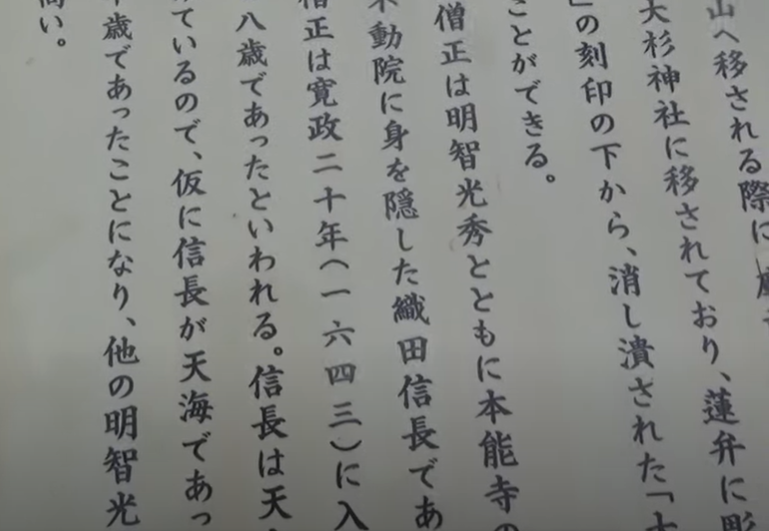 山へ移される際に
大杉神社に移されており、蓮弁に彫
」の刻印の下から、消し潰された「大
ことができる。
僧正は明智光秀とともに本能寺の
不動院に身を隠した織田信長であ
僧正は寛政二十年（一六四三）に入
八歳であったといわれる。信長は天
ているので、仮に信長が天海であっ
歳であったことになり、他の明智光
高い。